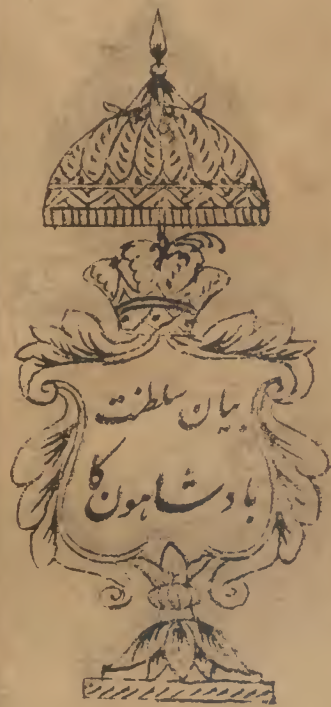 بیان سلطنت
بادشاہون کا